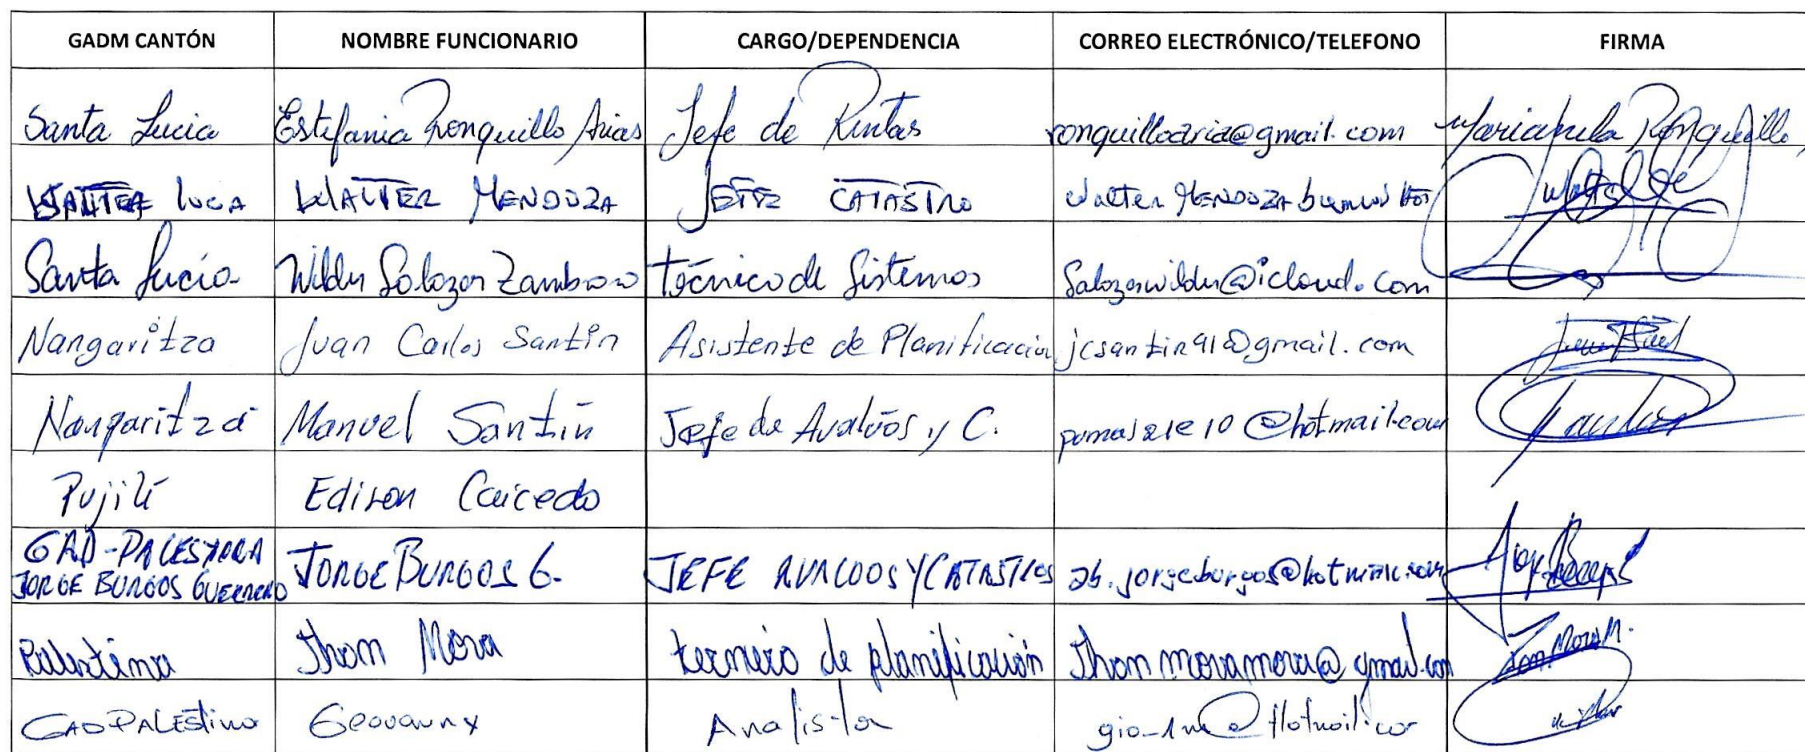 GADM CANTÓN NOMBRE FUNCIONARIO CARGO/DEPENDENCIA CORREO ELECTRÓNICO/TELEFONO FIRMA
Santa Lucia Estefania Ronquillo Arias Jefe de Rentas ronquilloaria@gmail.com Mariapaula Ronquillo
LUCIA WALTER MENDOZA JEFE CATASTRO Walter MENDOZA
Santa Lucía Wilder Salazar Zambrano Técnico de Sistemas Salazarwilder@icloud.com
Nangaritza Juan Carlos Santín Asistente de Planificación jcsantin91@gmail.com
Nangaritza Manuel Santín Jefe de Avalúos y C. @hotmail.com
Pujilí Edison Caicedo
GAD-PALESTINA
JORGE BURGOS GUERRERO JORGE BURGOS G. JEFE AVALUOS Y CATASTROS ab.jorgeburgos@hotmail.com
Palestina Jhon Mora tecnico de planificación Jhonmoramora@gmail.com Mora M.
GAD PALESTINA Geovanny Analista gio_1m@Hotmail.com